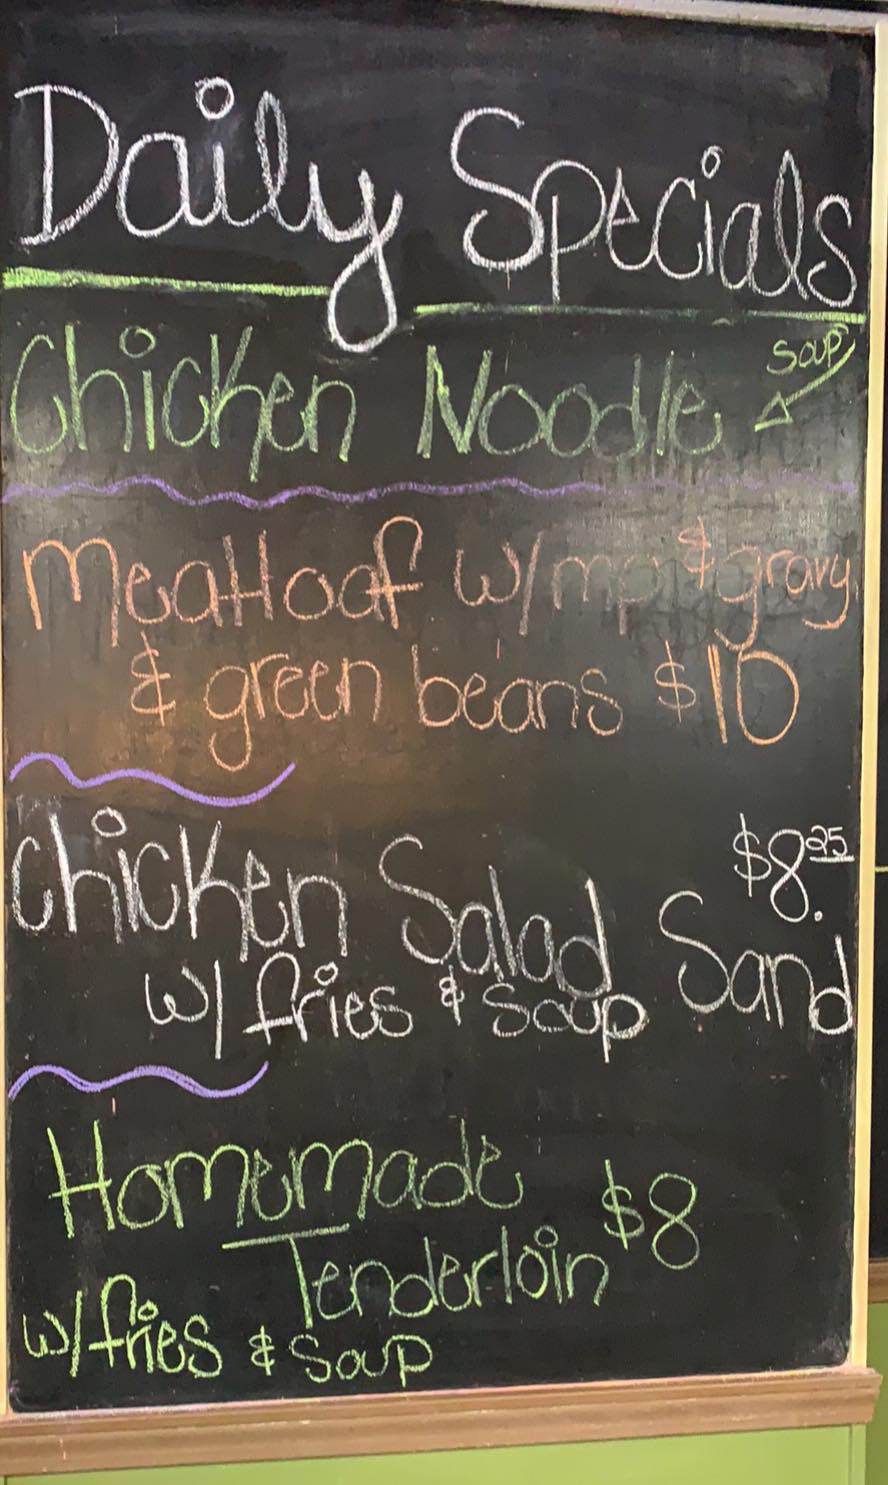 Daily Specials
soup
Chicken Noodle
Meatloaf w/mp & gravy
& green beans $10
$8.25
Chicken Salad Sand
w/ fries & soup
Homemade $8
Tenderloin
w/fries & soup